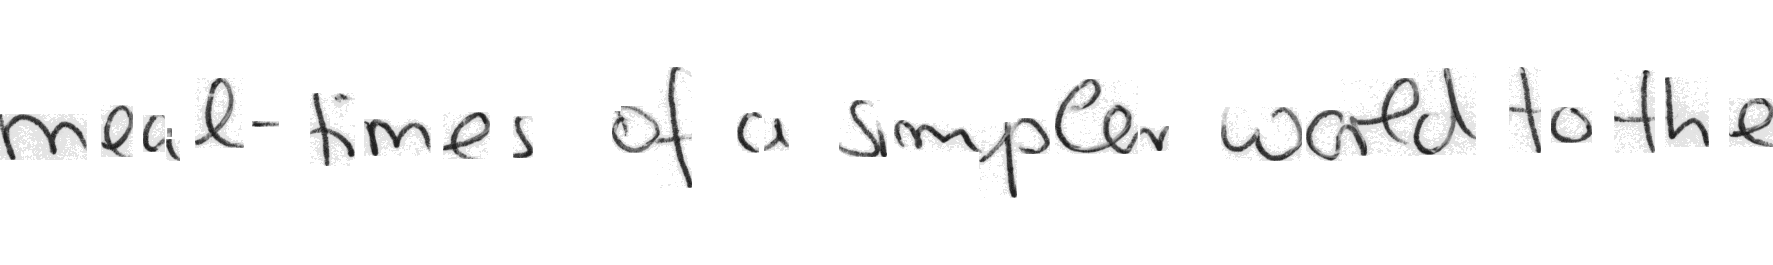 meal-times of a simpler world to the